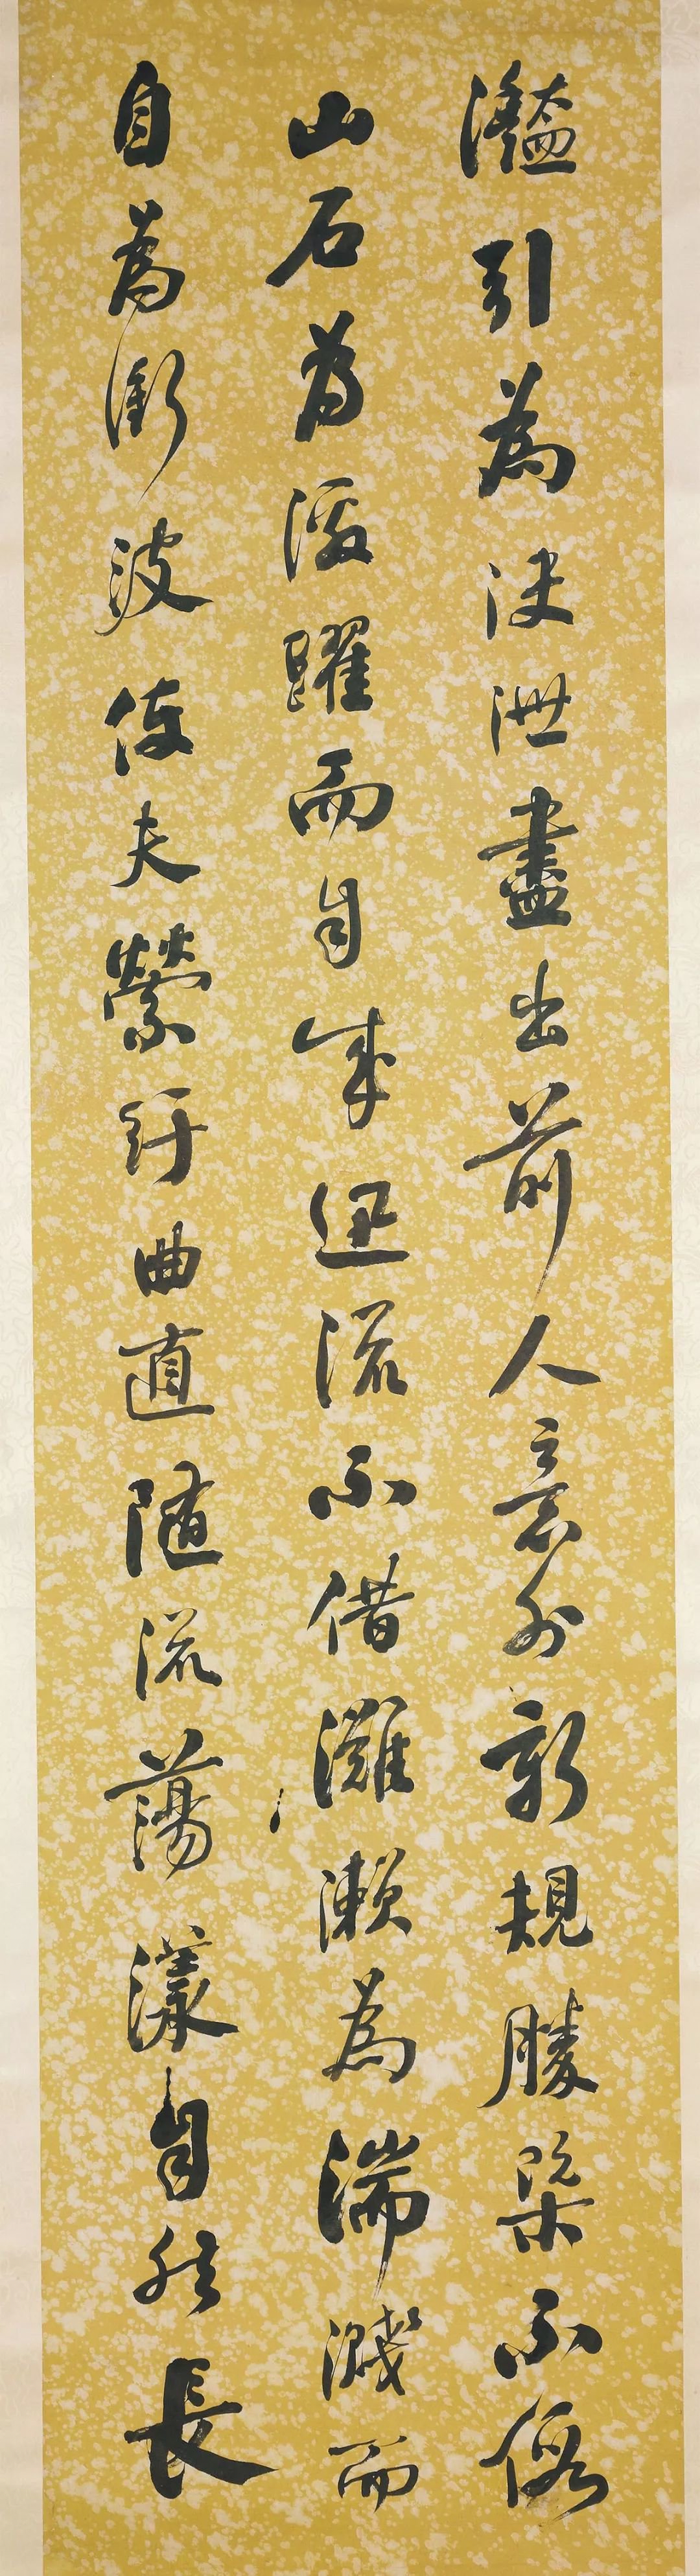 灩引為決泄盡出前人意外新規勝槩不假
山石為激躍而自成迅流不借灘瀨為湍濺而
自為衝波使夫縈紆曲直随流蕩漾自然長